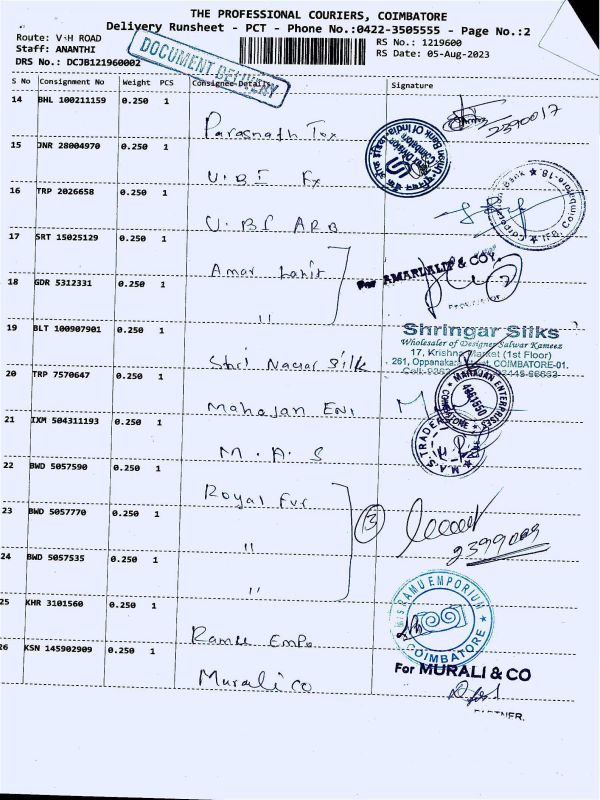 THE PROFESSIONAL COURIERS, COIMBATORE
Delivery Runsheet - PCT - Phone No.:0422-3505555 - Page No.:2
Route: V·H ROAD
RS No.: 1219600
Staff: ANANTHI
RS Date: 05-Aug-2023
DRS No.: DCJB121960002
DOCUMENT DELIVERY
S No Consignment No Weight PCS Consignee Details Signature
14 BHL 100211159 0.250 1 Parasnath Tex
2390017
15 JNR 28004970 0.250 1 U.B.I Fx
Union Bank Of India
Coimbatore
16 TRP 2026658 0.250 1 U.B.I ARB
Bank ★ IFB, Coimbatore-18.
17 SRT 15025129 0.250 1 Amar Lalit
For AMARLALIT & COY.
18 GDR 5312331 0.250 1 "
19 BLT 100907901 0.250 1 Shri Nagar Silk
Shringar Silks
Wholesaler of Designer Salwar Kameez
17, Krishna Market (1st Floor)
261, Oppanakara COIMBATORE-01.
20 TRP 7570647 0.250 1 Mahajan Ent
MAHAJAN ENTERPRISES
4361550
COIMBATORE
21 IXM 504311193 0.250 1 M.A.S
M.A.S TRADE
22 BWD 5057590 0.250 1 Royal Fur
23 BWD 5057770 0.250 1 "
3
2399009
24 BWD 5057535 0.250 1 "
25 KHR 3101560 0.250 1 Ramu Empo
M/S RAMU EMPORIUM
COIMBATORE
26 KSN 145902909 0.250 1 Murali co
For MURALI & CO
PARTNER.